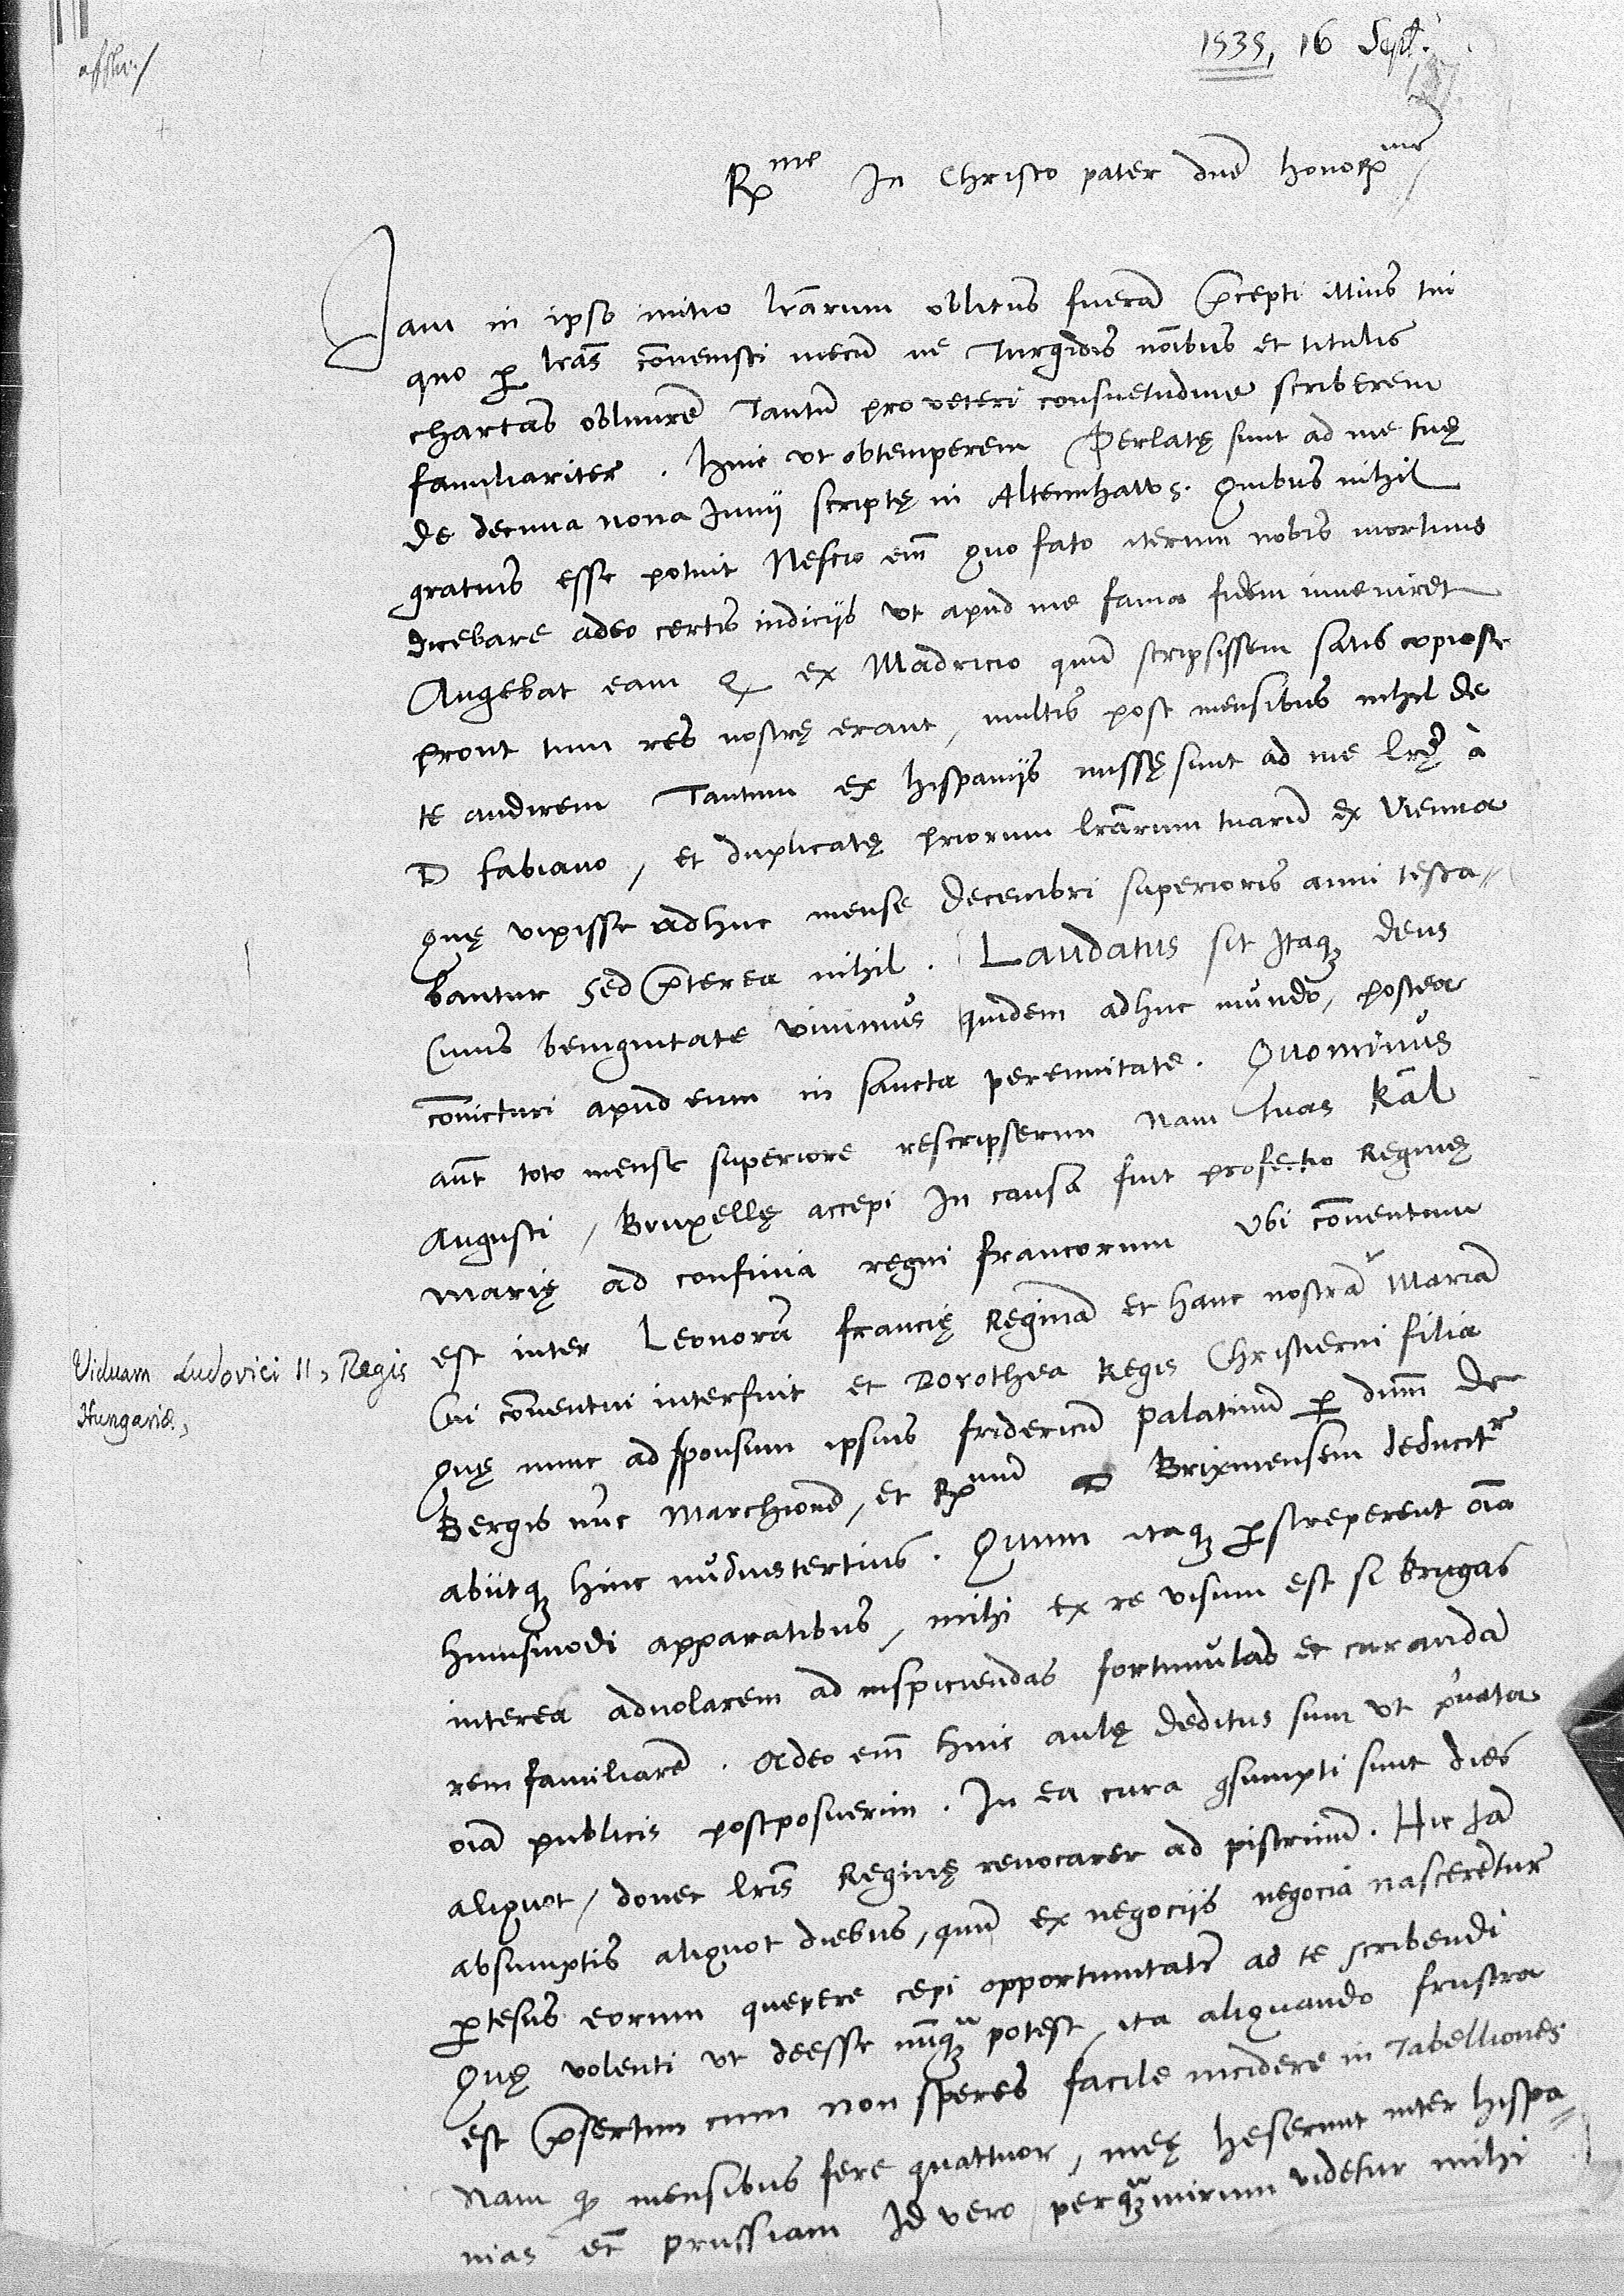 1535, 16 Sept.
R^me In Christo pater dne honor^me
Jam in ipso initio lrarum oblitus fueram precepti illius tui
quo per lras convenisti mecum ne Turgidis noibus et titulis
chartas oblinirem Tantum pro veteri consuetudine scriberem
familiariter. huic ut obtemperem Perlatę sunt ad me tuę
de decima nona Junij scriptę in Altennhaws. Quibus nihil
gratius esse potuit Nescio eni quo fato iterum nobis mortuus
dicebare adeo certis indicijs ut apud me fama fidem inveniret
Augebat eam q ex Madricio quum scripsissem satis copiose
prout tum res nostrę erant, multis post mensibus nihil de
te audirem Tantum ex hispanijs missę sunt ad me lrę à
D fabiano, et duplicatę priorum lrarum tuarum ex Vienna
Quę vixisse adhuc mense decembri superioris anni testa=
bantur sed preterea nihil. Laudatus sit Itaq deus
Cuius benignitate vivimus quidem adhuc mundo, postea
convicturi apud eum in sancta perennitate. Quominus
aut toto mense superiore rescripserim Nam tuas Kal
Augusti, Bruxellę accepi In causa fuit profectio Reginę
Marię ad confinia regni francorum Ubi conventum
est inter Leonoram francię Reginam et hanc nostram Mariam
Viduam Ludovici II, Regis
Hungariæ,
Cui conventui interfuit et Dorothea Regis Christierni filia
Quę nunc ad sponsum ipsius fridericum palatinum per dnum de
Bergis nuc Marchionem, et R^mum D Brixinensem deducitr
abiitq hinc nudiustertius. Quum itaq perstreperent oia
huiusmodi apparatibus, mihi ex re visum est si Brugas
interea advolarem ad inspiciendas fortunulas et curandam
rem familiarem. Adeo eni huic aulę deditus sum ut privata
oia publicis postposuerim. In ea cura consumpti sunt dies
aliquot, donec lris Reginę revocarer ad pistrinum. Hic Jam
absumptis aliquot diebus, quum ex negocijs negocia nascerentur
pertesus eorum querere cepi opportunitatem ad te scribendi
Quę volenti ut deesse nunq potest, ita aliquando frustra
est presertim cum non speres facile incidere in Tabelliones
Nam q mensibus fere quattuor, meę heserunt inter hispa=
nias et prussiam Id vero perq mirum videtur mihi